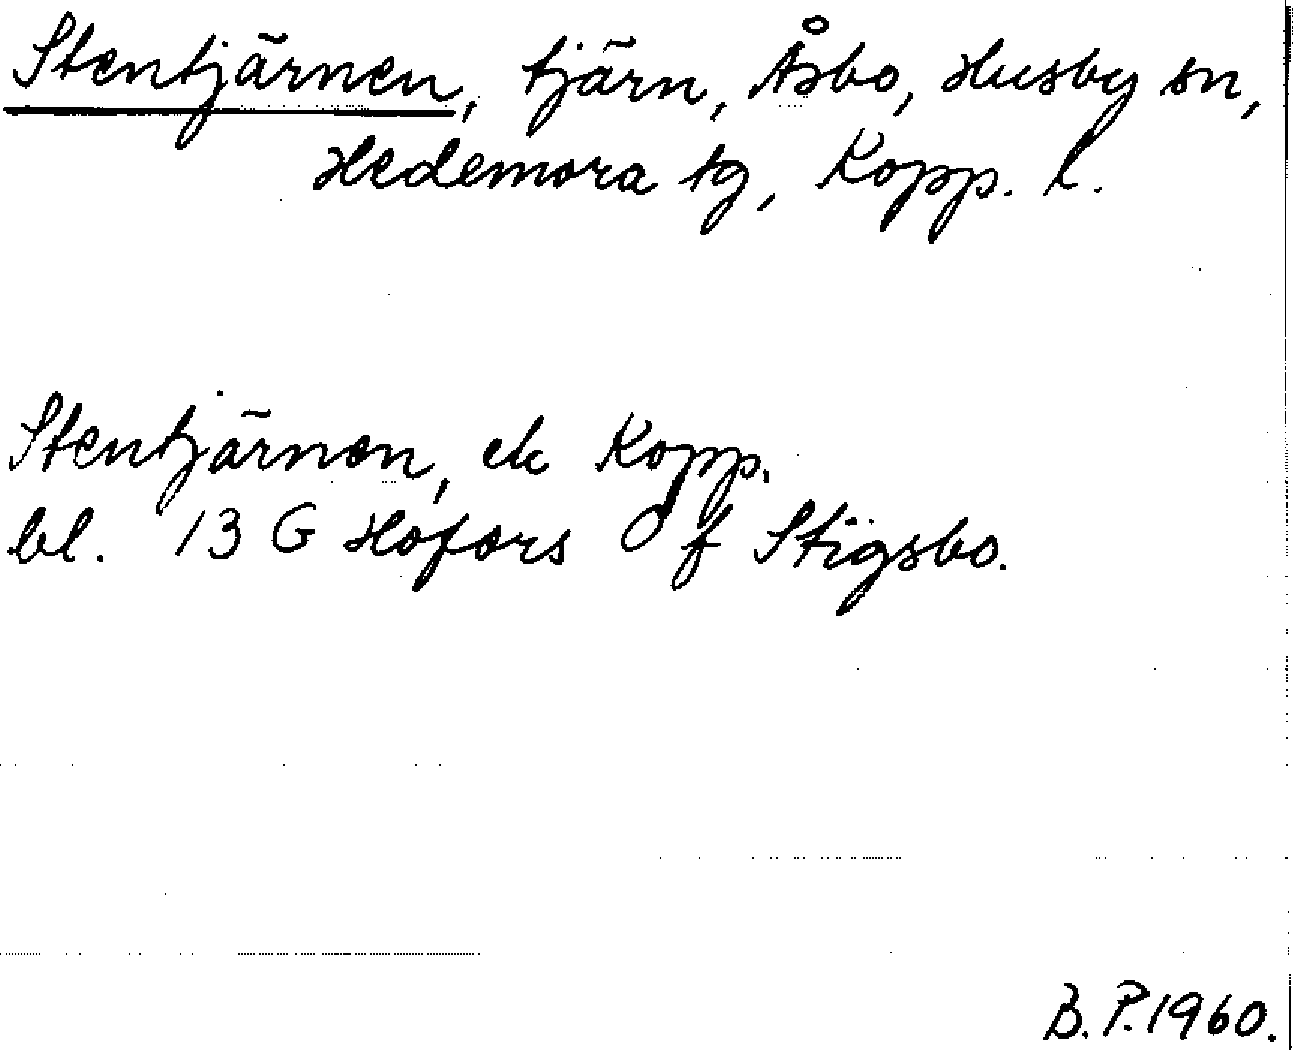 Stentjärnen, tjärn, Åsbo, Husby sn,
Hedemora tg, Kopp. l.
Stentjärnen, ek Kopp.
bl. 13 G Hofors O f Stigsbo.
B. P. 1960.